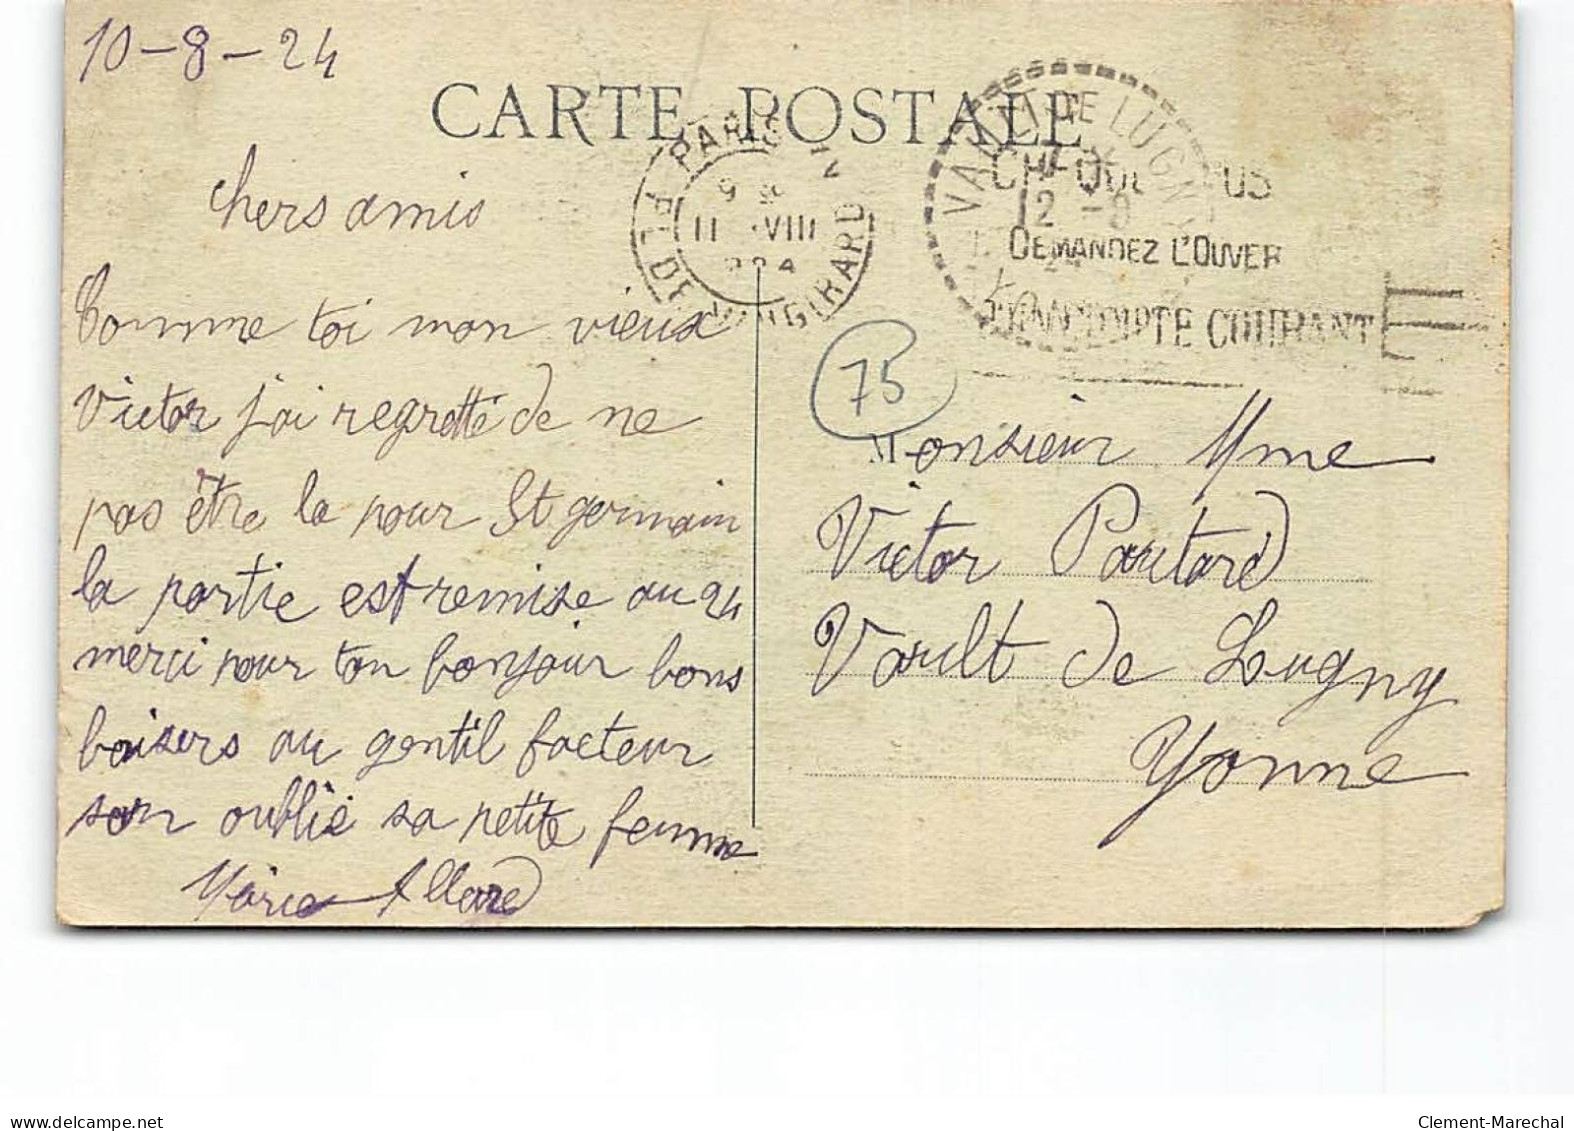 10-8-24
CARTE POSTALE
PARIS
9
11 VIII
PL DE VAUGIRARD
VAULT DE LUGNY
12 -8
24
DEMANDEZ L'OUVER
COMPTE COURANT
chers amis
Comme toi mon vieux
Victor j'ai regretté de ne
pas être la pour St germain
la partie est remise au 24
merci pour ton bonjour bons
baisers au gentil facteur
son oublié sa petite femme
Marie Allard
75
Monsieur Mme
Victor Pautard
Vault de Lugny
Yonne
www.delcampe.net
Clement-Marechal